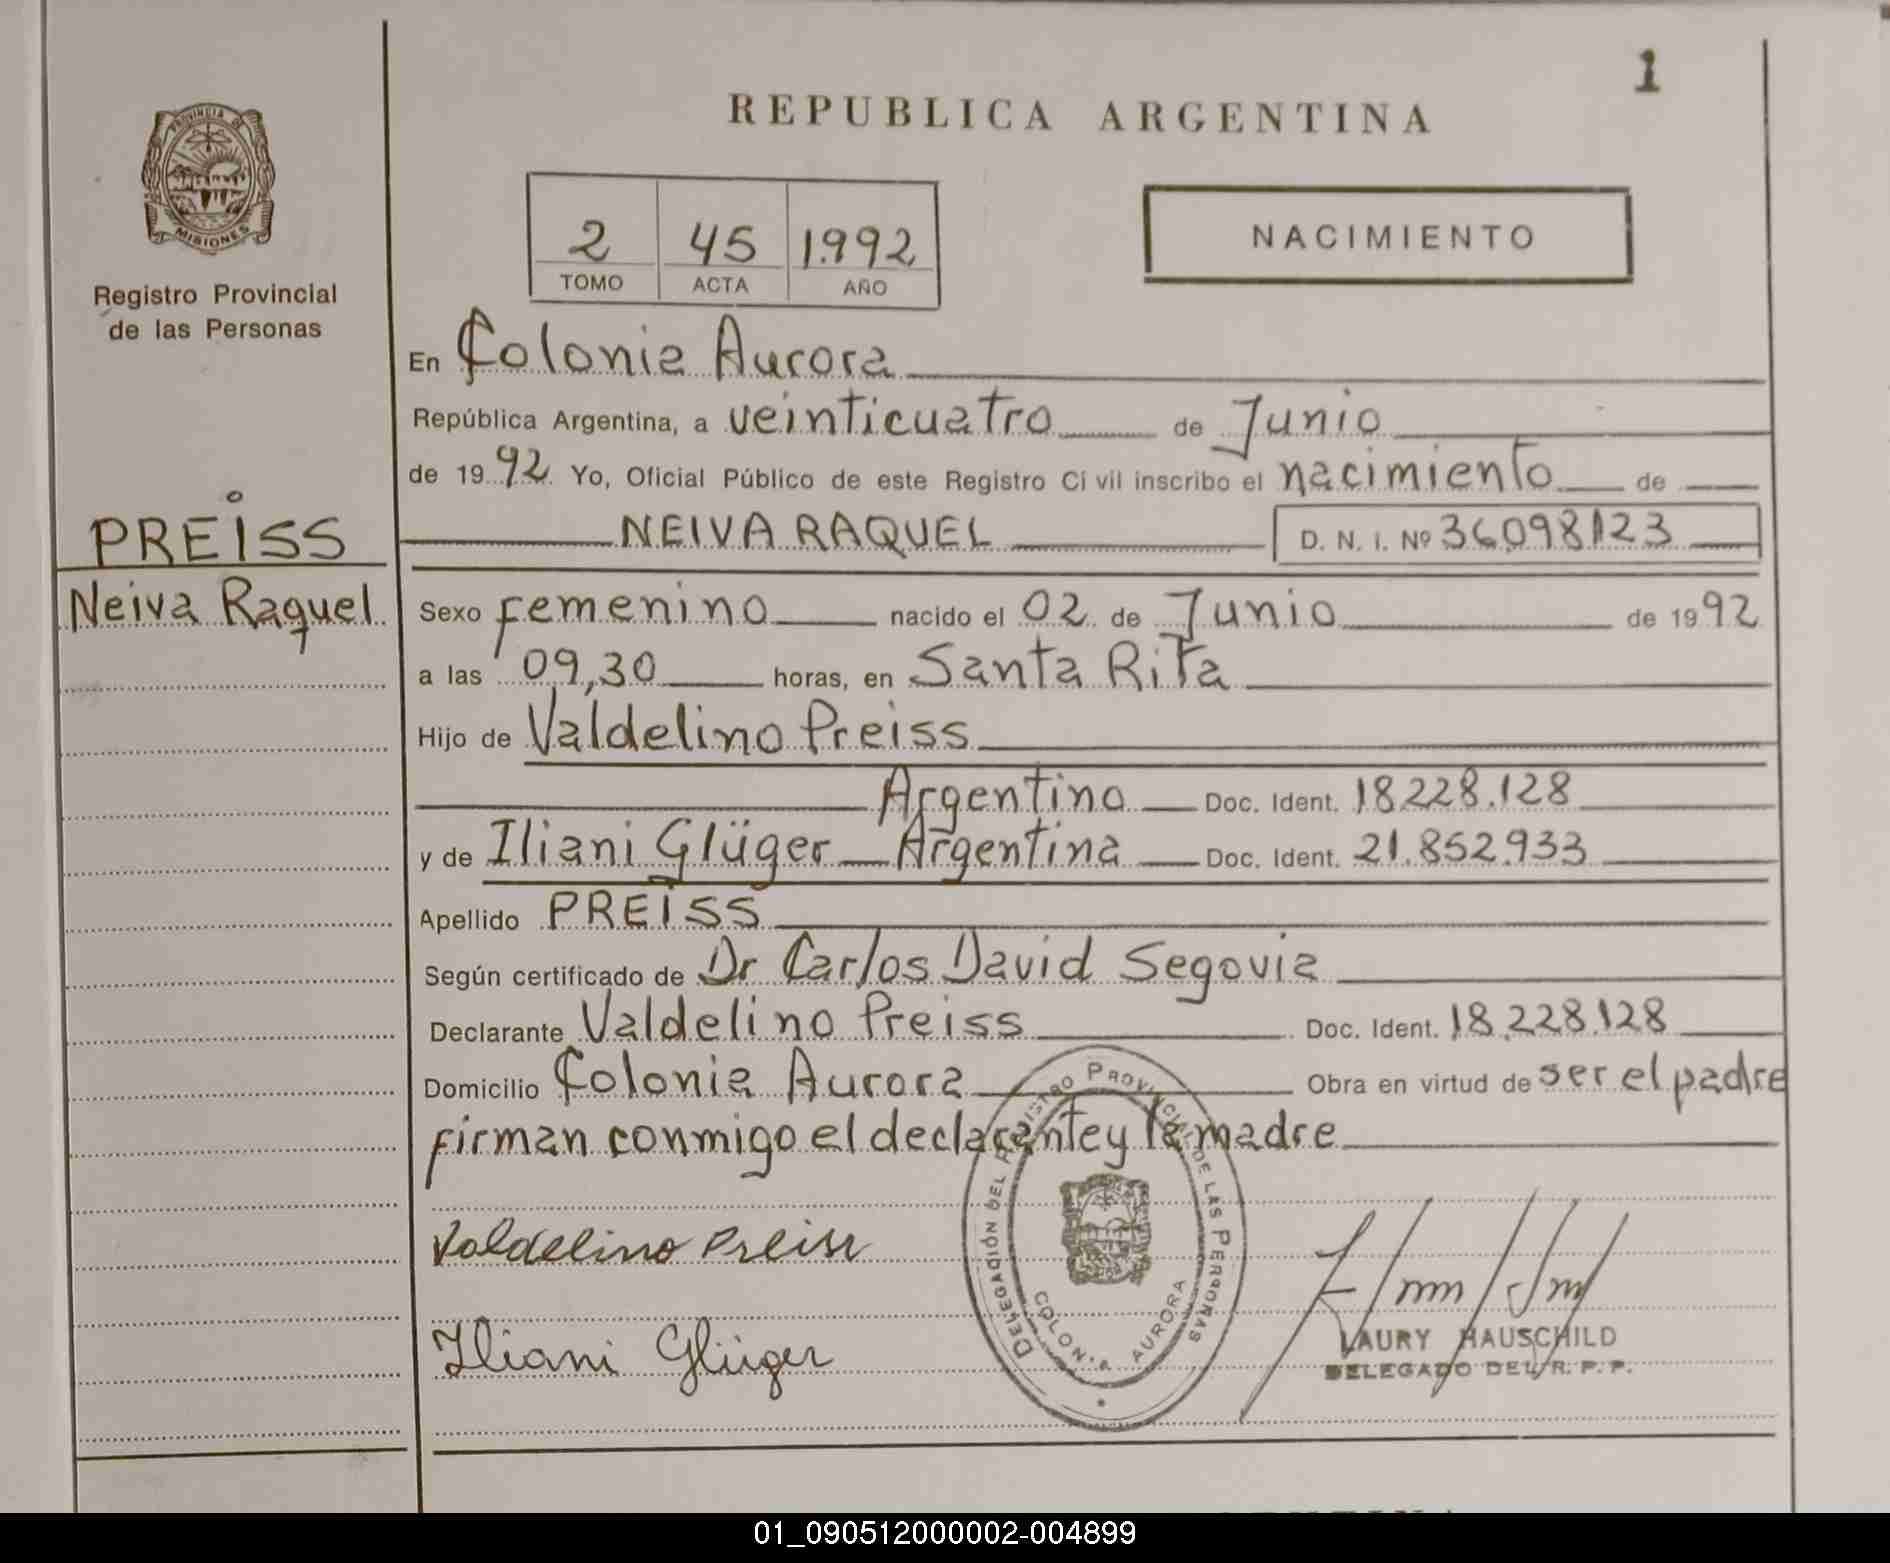 1
REPUBLICA ARGENTINA
PROVINCIA DE
MISIONES
Registro Provincial
de las Personas
2 45 1.992
TOMO ACTA AÑO
NACIMIENTO
En Colonia Aurora
República Argentina, a veinticuatro de Junio
de 1992 Yo, Oficial Público de este Registro Civil inscribo el nacimiento de
PREISS
Neiva Raquel
NEIVA RAQUEL D. N. I. Nº 36098123
Sexo femenino nacido el 02 de Junio de 1992
a las 09,30 horas, en Santa Rita
Hijo de Valdelino Preiss
Argentino Doc. Ident. 18228.128
y de Iliani Glüger Argentina Doc. Ident. 21.852.933
Apellido PREISS
Según certificado de Dr Carlos David Segovia
Declarante Valdelino Preiss Doc. Ident. 18.228.128
Domicilio Colonia Aurora Obra en virtud de ser el padre
firman conmigo el declarante y la madre
Valdelino Preiss
Iliani Glüger
DELEGACIÓN DEL REGISTRO PROVINCIAL DE LAS PERSONAS
COLONIA AURORA
LAURY HAUSCHILD
DELEGADO DEL R. P. P.
01_090512000002-004899